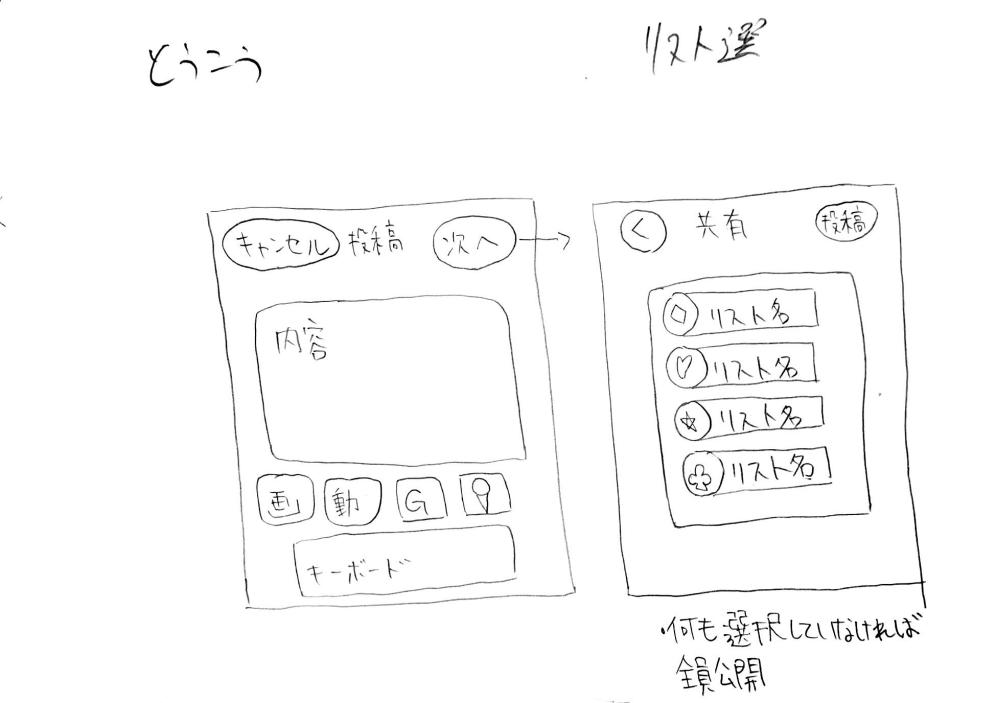 とうこう
リスト選
キャンセル 投稿 次へ
内容
画 動 G
キーボード
< 共有 投稿
リスト名
リスト名
リスト名
リスト名
・何も選択していなければ
全員公開